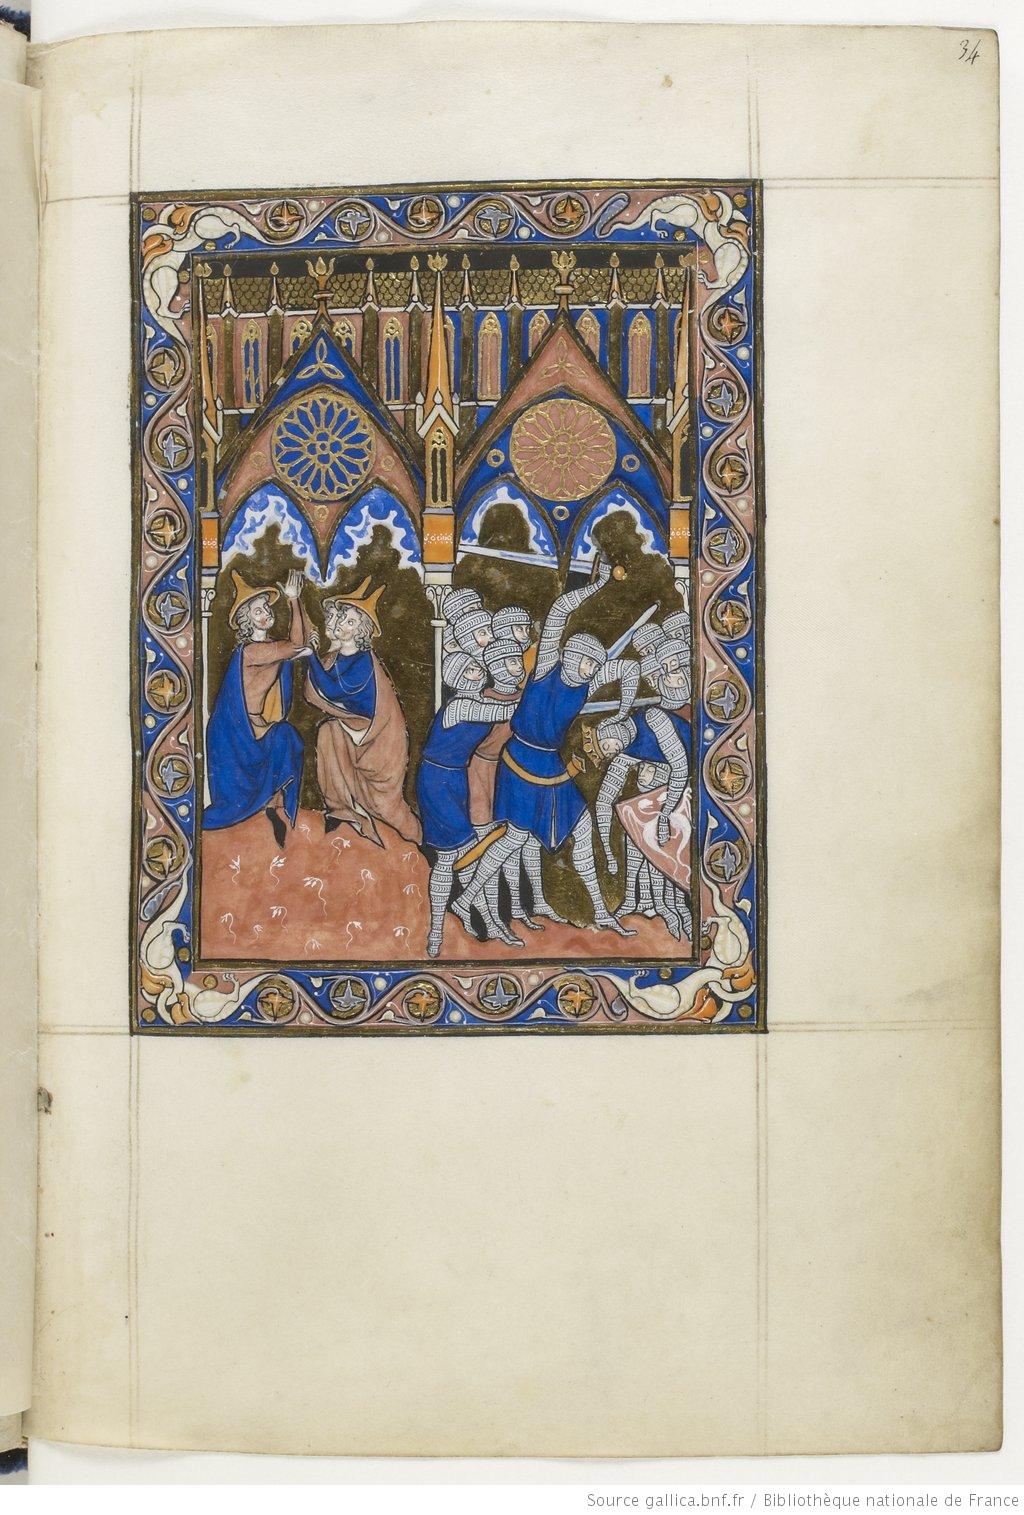 34
Source gallica.bnf.fr / Bibliothèque nationale de France